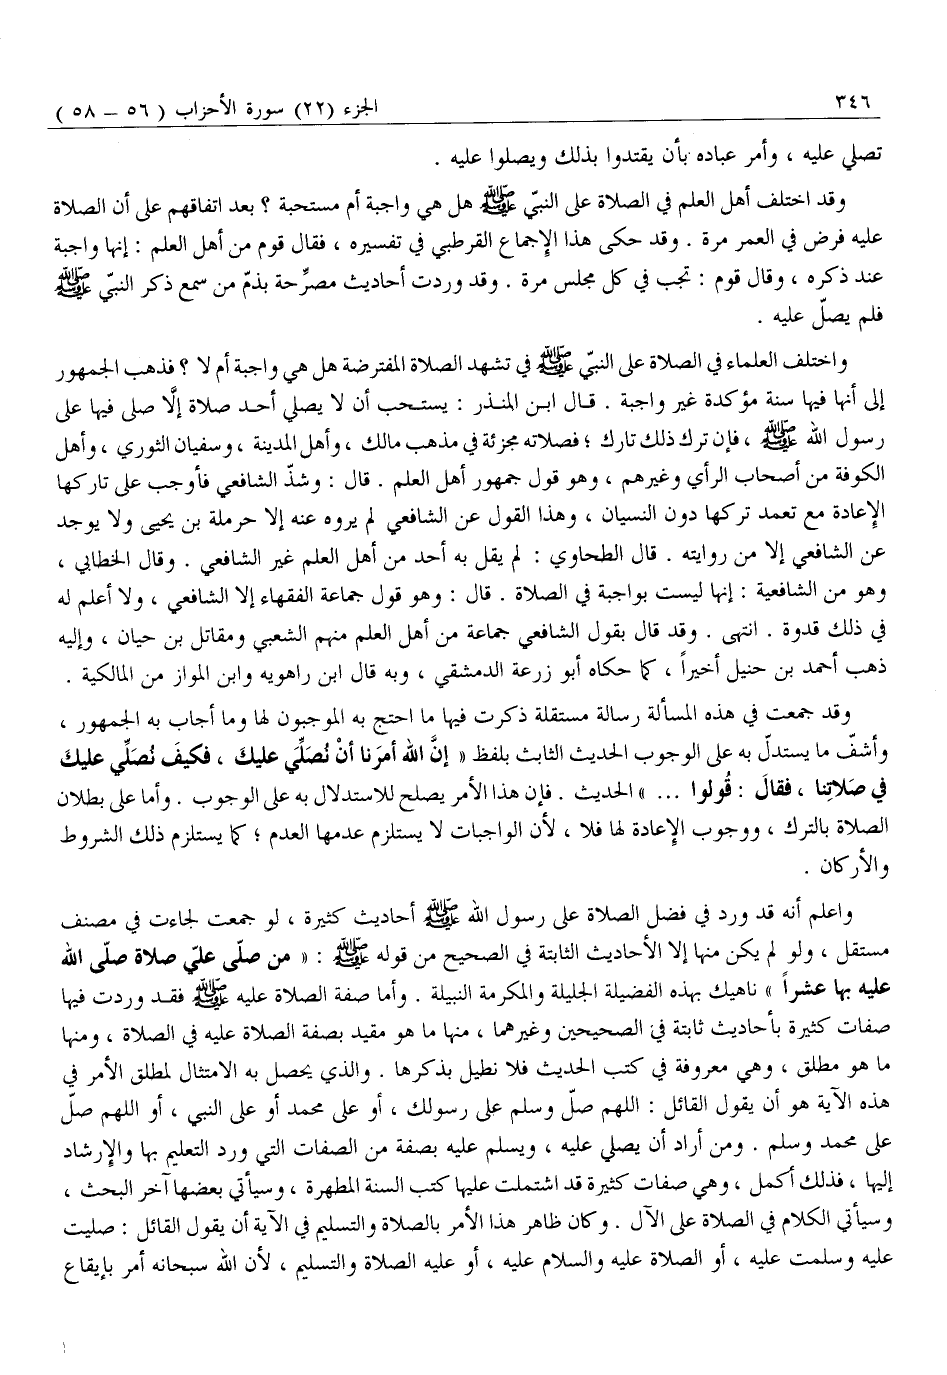 ٣٤٦ الجزء (٢٢) سورة الأحزاب ( ٥٦ – ٥٨ )
تصلي عليه ، وأمر عباده بأن يقتدوا بذلك ويصلوا عليه .
وقد اختلف أهل العلم في الصلاة على النبيّ ﷺ هل هي واجبة أم مستحبة ؟ بعد اتفاقهم على أن الصلاة
عليه فرض في العمر مرة . وقد حكى هذا الإجماع القرطبي في تفسيره ، فقال قوم من أهل العلم : إنها واجبة
عند ذكره ، وقال قوم : تجب في كل مجلس مرة . وقد وردت أحاديث مصرِّحة بذمّ من سمع ذكر النبيّ ﷺ
فلم يصلّ عليه .
واختلف العلماء في الصلاة على النبيّ ﷺ في تشهد الصلاة المفترضة هل هي واجبة أم لا ؟ فذهب الجمهور
إلى أنها فيها سنة مؤكدة غير واجبة . قال ابن المنذر : يستحب أن لا يصلي أحد صلاة إلَّا صلى فيها على
رسول الله ﷺ ، فإن ترك ذلك تارك ؛ فصلاته مجزئة في مذهب مالك ، وأهل المدينة ، وسفيان الثوري ، وأهل
الكوفة من أصحاب الرأي وغيرهم ، وهو قول جمهور أهل العلم . قال : وشذّ الشافعي فأوجب على تاركها
الإعادة مع تعمد تركها دون النسيان ، وهذا القول عن الشافعي لم يروه عنه إلا حرملة بن يحيى ولا يوجد
عن الشافعي إلا من روايته . قال الطحاوي : لم يقل به أحد من أهل العلم غير الشافعي . وقال الخطابي ،
وهو من الشافعية : إنها ليست بواجبة في الصلاة . قال : وهو قول جماعة الفقهاء إلا الشافعي ، ولا أعلم له
في ذلك قدوة . انتهى . وقد قال بقول الشافعي جماعة من أهل العلم منهم الشعبي ومقاتل بن حيان ، وإليه
ذهب أحمد بن حنبل أخيراً ، كما حكاه أبو زرعة الدمشقي ، وبه قال ابن راهويه وابن المواز من المالكية .
وقد جمعت في هذه المسألة رسالة مستقلة ذكرت فيها ما احتج به الموجبون لها وما أجاب به الجمهور ،
وأشفّ ما يستدلّ به على الوجوب الحديث الثابت بلفظ « إنَّ الله أمرَنا أنْ نُصَلِّيَ عليكَ ، فكيفَ نُصَلِّي عليكَ
في صَلاتِنا ، فقالَ : قُولوا ... » الحديث . فإن هذا الأمر يصلح للاستدلال به على الوجوب . وأما على بطلان
الصلاة بالترك ، ووجوب الإعادة لها فلا ، لأن الواجبات لا يستلزم عدمها العدم ؛ كما يستلزم ذلك الشروط
والأركان .
واعلم أنه قد ورد في فضل الصلاة على رسول الله ﷺ أحاديث كثيرة ، لو جمعت لجاءت في مصنف
مستقل ، ولو لم يكن منها إلا الأحاديث الثابتة في الصحيح من قوله ﷺ : « من صلّى عليّ صلاة صلّى الله
عليه بها عشراً » ناهيك بهذه الفضيلة الجليلة والمكرمة النبيلة . وأما صفة الصلاة عليه ﷺ فقد وردت فيها
صفات كثيرة بأحاديث ثابتة في الصحيحين وغيرهما ، منها ما هو مقيد بصفة الصلاة عليه في الصلاة ، ومنها
ما هو مطلق ، وهي معروفة في كتب الحديث فلا نطيل بذكرها . والذي يحصل به الامتثال لمطلق الأمر في
هذه الآية هو أن يقول القائل : اللهم صلّ وسلم على رسولك ، أو على محمد أو على النبي ، أو اللهم صلّ
على محمد وسلم . ومن أراد أن يصلي عليه ، ويسلم عليه بصفة من الصفات التي ورد التعليم بها والإرشاد
إليها ، فذلك أكمل ، وهي صفات كثيرة قد اشتملت عليها كتب السنة المطهرة ، وسيأتي بعضها آخر البحث ،
وسيأتي الكلام في الصلاة على الآل . وكان ظاهر هذا الأمر بالصلاة والتسليم في الآية أن يقول القائل : صليت
عليه وسلمت عليه ، أو الصلاة عليه والسلام عليه ، أو عليه الصلاة والتسليم ، لأن الله سبحانه أمر بإيقاع